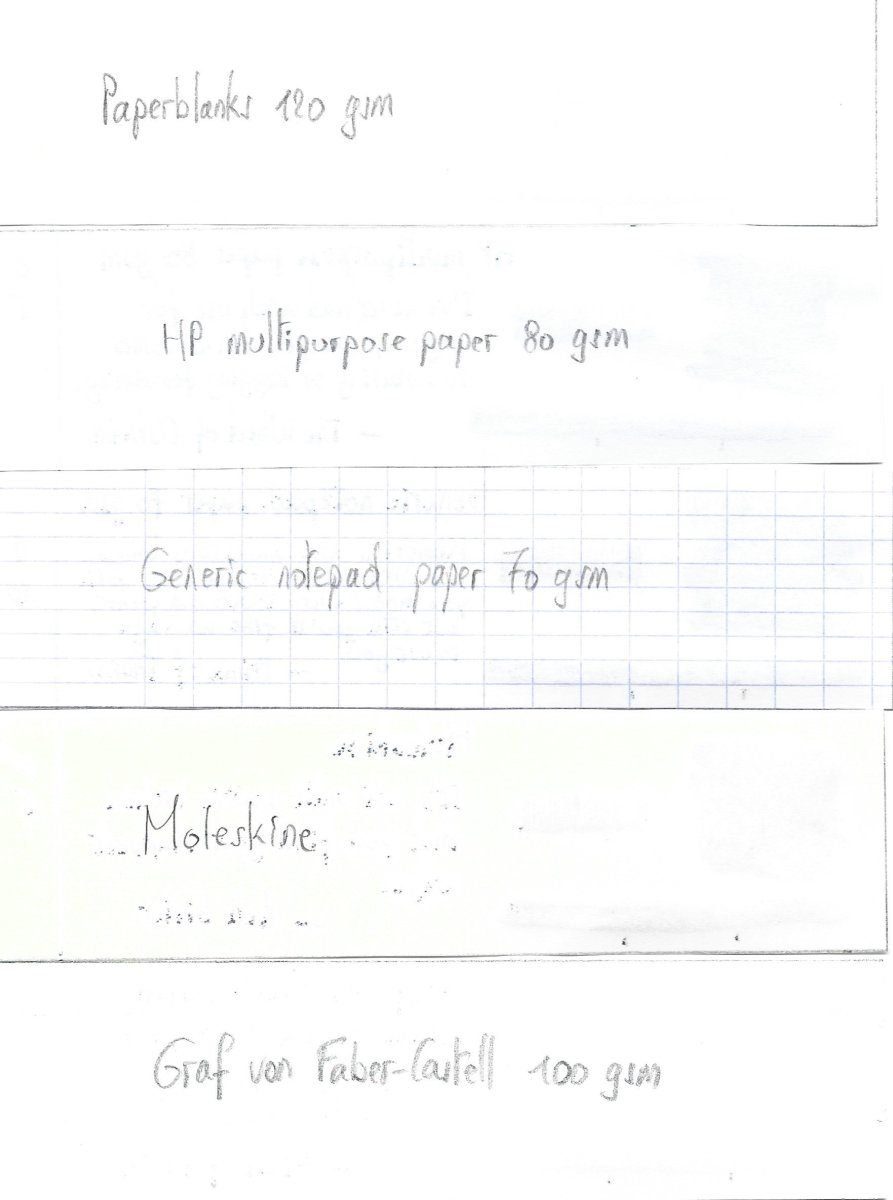 Paperblanks 120 gsm
HP multipurpose paper 80 gsm
Generic notepad paper 70 gsm
Moleskine
Graf von Faber-Castell 100 gsm